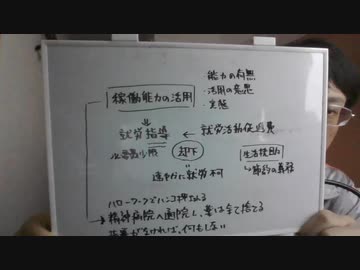 ・能力の有無
稼働能力の活用
・活用の意思
・実態
就労指導
就労活動促進費
却下
生活扶助
速やかに就労 不可
→節約の義務
ハローワークでハンコ押したる
精神病院へ通院し、薬は全て捨てる
がなければ、何もしない